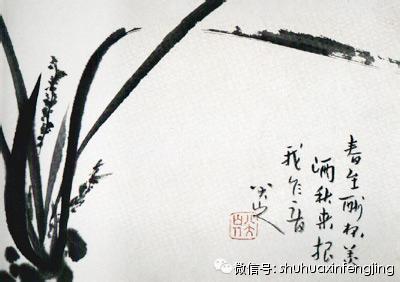 春至酬杯美
酒秋来报
我乍音
八大山人
微信号: shuhuaxinfengjing